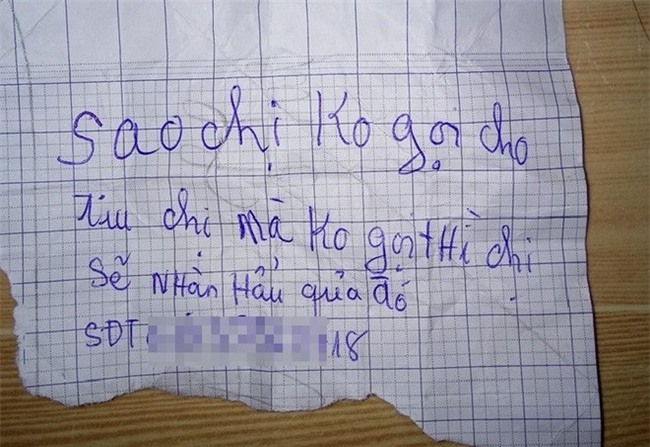 Sao chị Ko gọi cho
tui chị mà Ko gọi tHì chị
Sẽ NHận Hẩu quả đó
SĐT 18